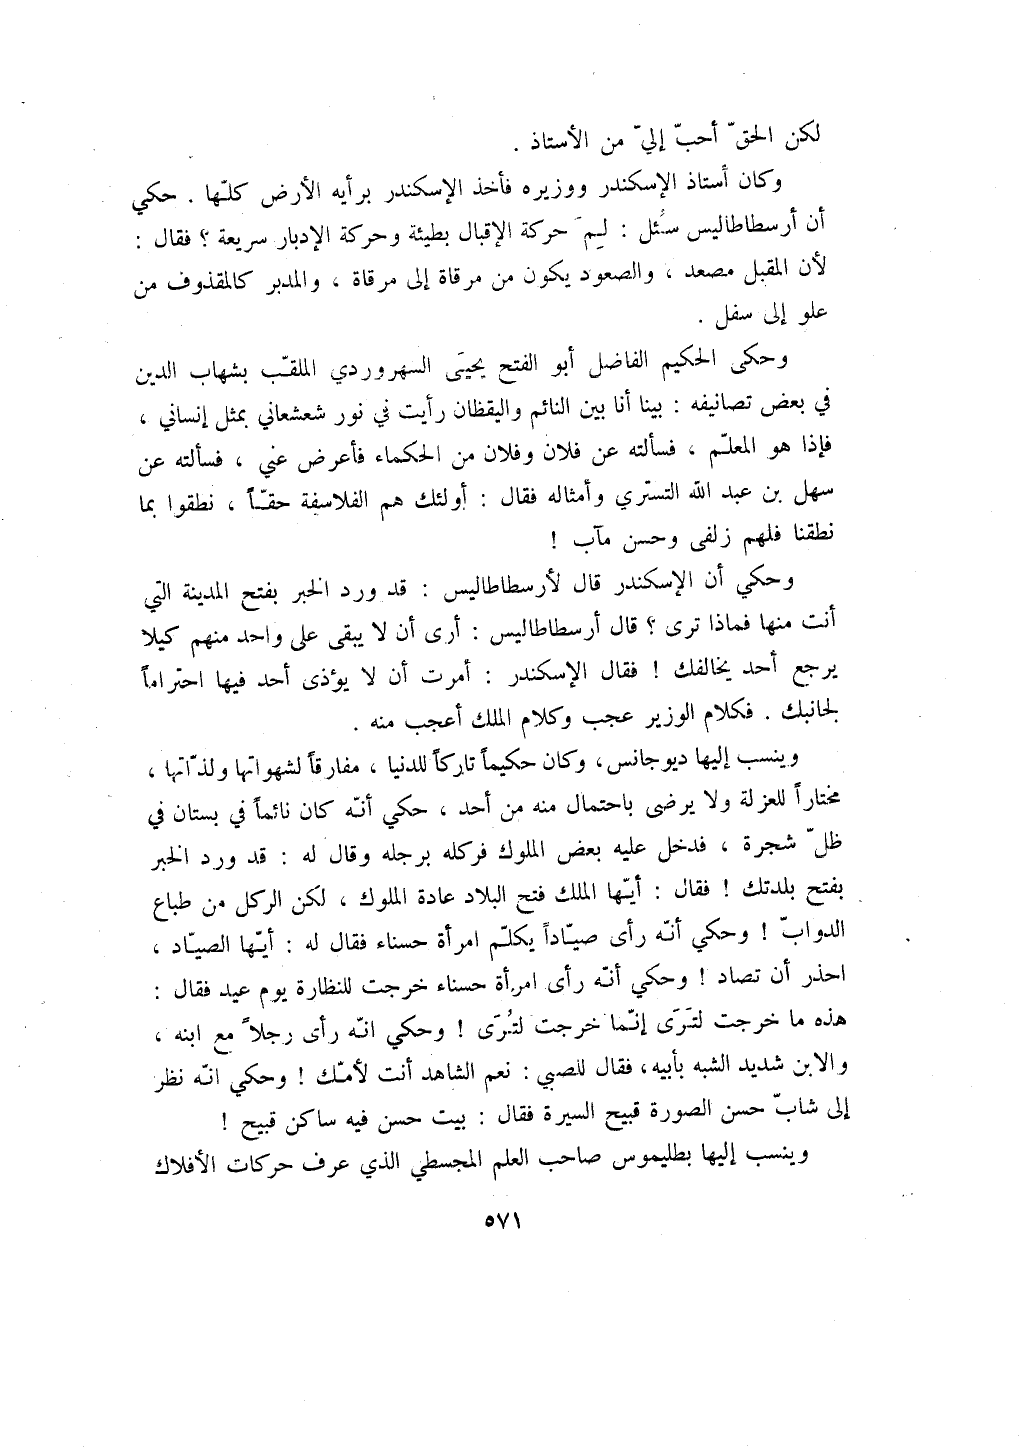 لكن الحقّ أحبّ إليّ من الأستاذ .
وكان أستاذ الإسكندر ووزيره فأخذ الإسكندر برأيه الأرض كلّها . حكي
أن أرسطاطاليس سُئل : لِمَ حركة الإقبال بطيئة وحركة الإدبار سريعة ؟ فقال :
لأن المقبل مصعد ، والصعود يكون من مرقاة إلى مرقاة ، والمدبر كالمقذوف من
علو إلى سفل .
وحكى الحكيم الفاضل أبو الفتح يحيَى السهروردي الملقّب بشهاب الدين
في بعض تصانيفه : بينا أنا بين النائم واليقظان رأيت في نور شعشعاني بمثل إنساني ،
فإذا هو المعلّم ، فسألته عن فلان وفلان من الحكماء فأعرض عني ، فسألته عن
سهل بن عبد الله التستّري وأمثاله فقال : أولئك هم الفلاسفة حقّاً ، نطقوا بما
نطقنا فلهم زلفى وحسن مآب !
وحكي أن الإسكندر قال لأرسطاطاليس : قد ورد الخبر بفتح المدينة التي
أنت منها فماذا ترى ؟ قال أرسطاطاليس : أرى أن لا يبقى على واحد منهم كيلا
يرجع أحد يخالفك ! فقال الإسكندر : أمرت أن لا يؤذى أحد فيها احتراماً
لجانبك . فكلام الوزير عجب وكلام الملك أعجب منه .
وينسب إليها ديوجانس، وكان حكيماً تاركاً للدنيا ، مفارقاً لشهواتها ولذّاتها ،
مختاراً للعزلة ولا يرضى باحتمال منه من أحد ، حكي أنّه كان نائماً في بستان في
ظلّ شجرة ، فدخل عليه بعض الملوك فركله برجله وقال له : قد ورد الخبر
بفتح بلدتك ! فقال : أيّها الملك فتح البلاد عادة الملوك ، لكن الركل من طباع
الدوابّ ! وحكي أنّه رأى صيّاداً يكلّم امرأة حسناء فقال له : أيّها الصيّاد ،
احذر أن تصاد ! وحكي أنّه رأى امرأة حسناء خرجت للنظارة يوم عيد فقال :
هذه ما خرجت لتَرَى إنّما خرجت لتُرَى ! وحكي انّه رأى رجلاً مع ابنه ،
والابن شديد الشبه بأبيه، فقال للصبي : نعم الشاهد أنت لأمّك ! وحكي انّه نظر
إلى شابّ حسن الصورة قبيح السيرة فقال : بيت حسن فيه ساكن قبيح !
وينسب إليها بطليموس صاحب العلم المجسطي الذي عرف حركات الأفلاك
٥٧١